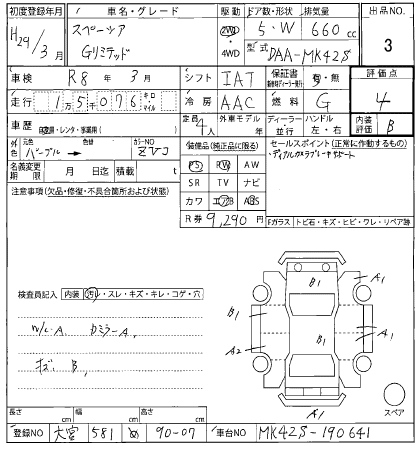 初度登録年月 車名・グレード 駆動 ドア数・形状 排気量 出品NO.
H29年/3月 スペーシア Gリミテッド 2WD・4WD 5・W 660cc 3
型式 DAA-MK42S
車検 R8年3月 シフト IAT 保証書 有・無 評価点
走行 1万5千076 キロ・マイル 冷房 AAC 燃料 G 4
車歴 自家用・レンタ・事業用( ) 定員 4人 外車モデル 年 ディーラー・並行 ハンドル 左・右 内装評価 B
外色 元色 パープル→ 色替 カラーNO ZVJ 装備品(純正品に限る) セールスポイント(正常に作動するもの)
名義変更期限 月 日迄 積載 t PS PW AW
注意事項(欠品・修復・不具合箇所および状態) SR TV ナビ
カワ エアB ABS
R券 9,290円 Fガラス トビ石・キズ・ヒビ・ワレ・リペア跡
検査員記入 内装 汚レ・スレ・キズ・キレ・コゲ・穴
W/C A
キズ B1
B1
A1
B1
A1
A2
B1
A1
スペア
長さ cm 幅 cm 高さ cm
登録NO 大宮 581 90-07 車台NO MK42S-190641